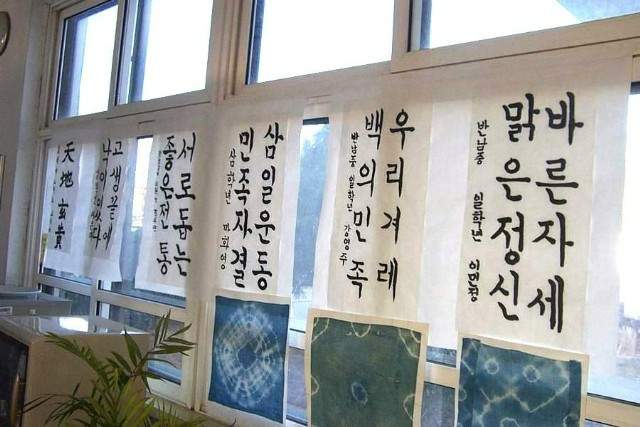 바른자세
맑은정신
반남중 일학년 이민정
우리겨레
백의민족
반남중 일학년 강영주
삼일운동
민족자결
삼학년
서로돕는
좋은전통
고생끝에
낙이있다
天地玄黃